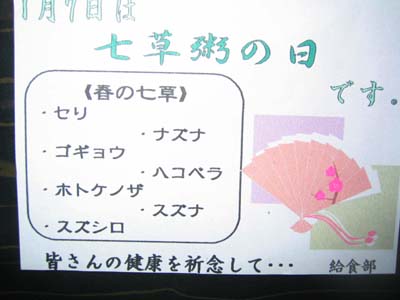 1月7日は
七草粥の日
です。
《春の七草》
・セリ
・ナズナ
・ゴギョウ
・ハコベラ
・ホトケノザ
・スズナ
・スズシロ
皆さんの健康を祈念して・・・
給食部